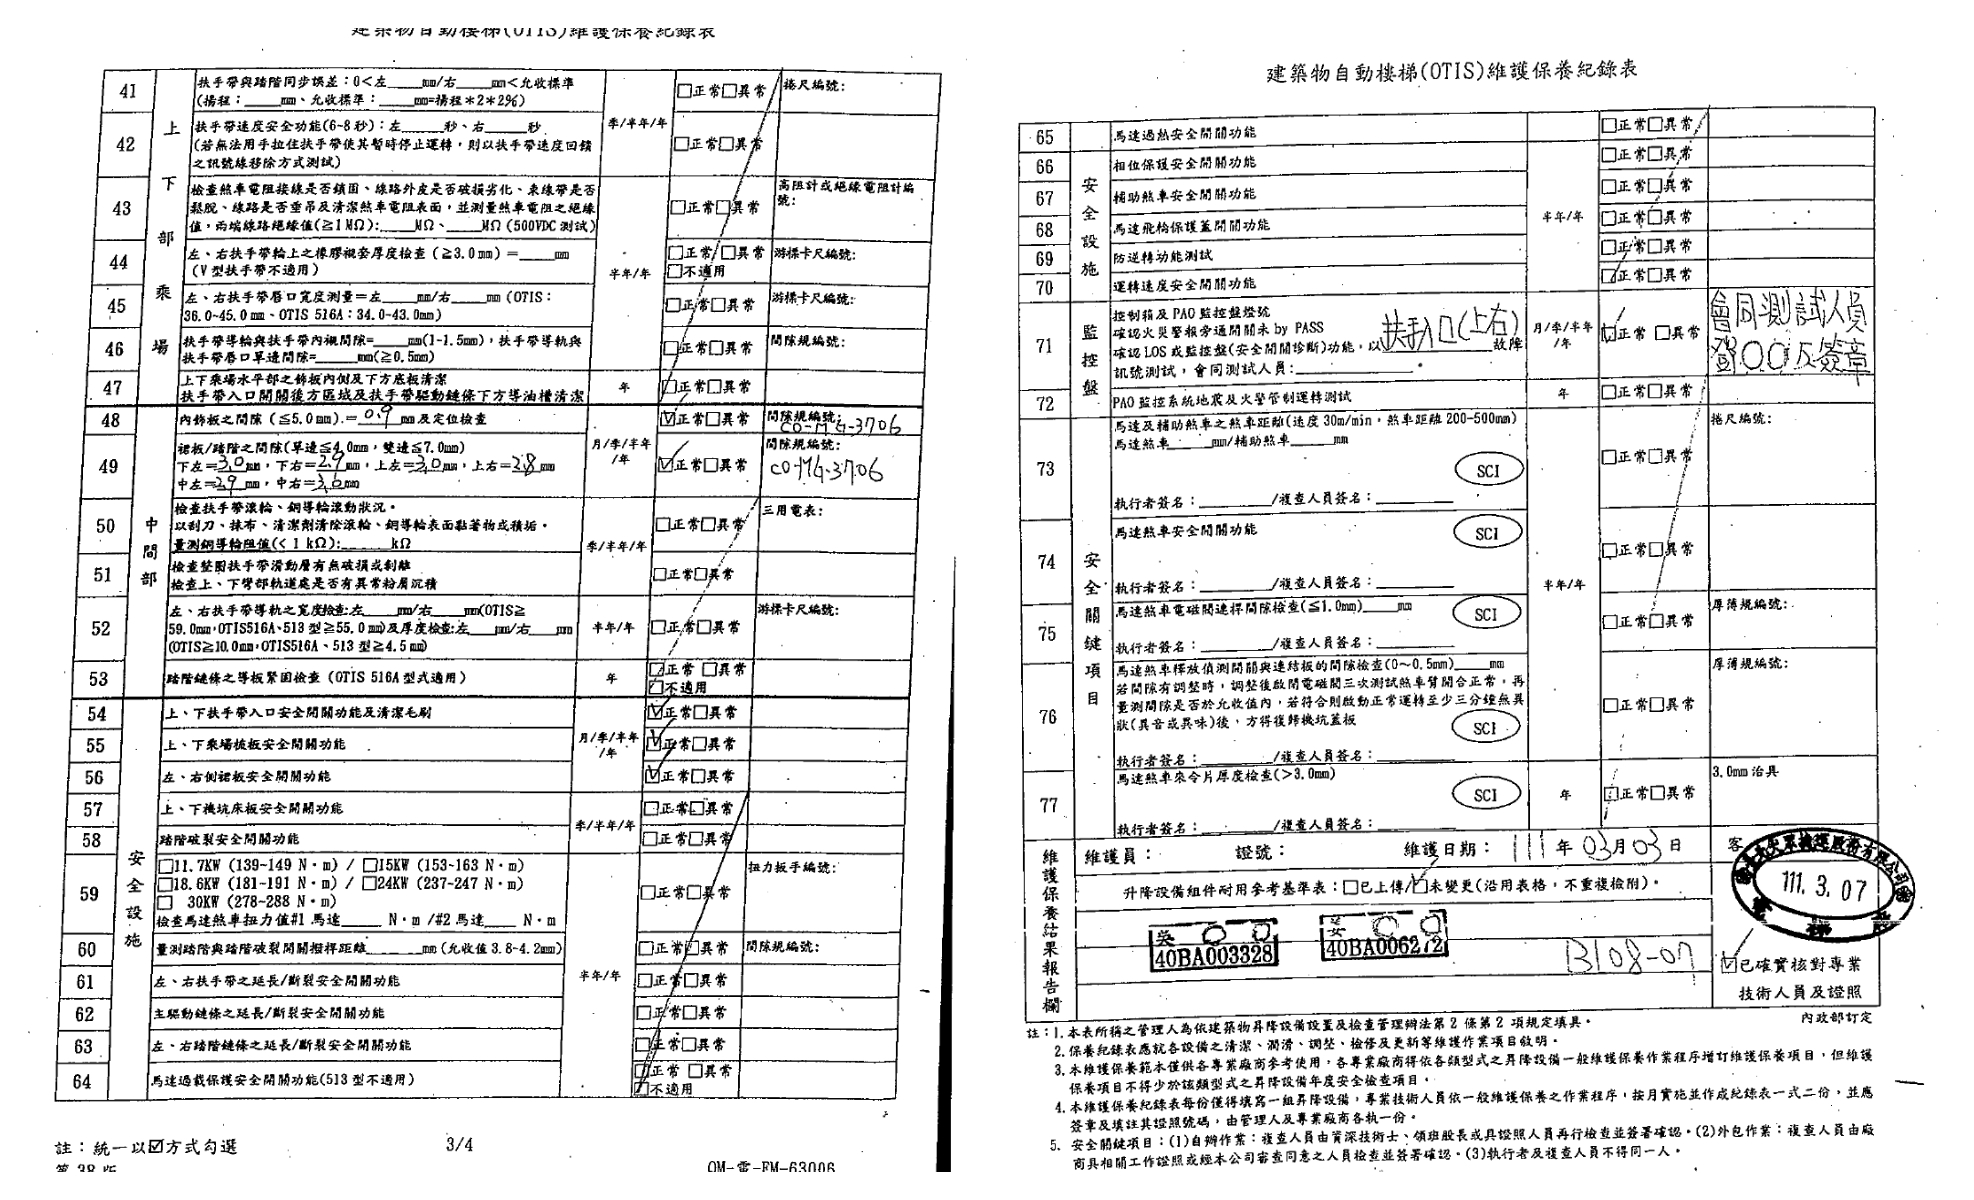 建築物自動樓梯(OTIS)維護保養紀錄表
41
扶手帶與踏階同步誤差：0<左____mm/右____mm<允收標準
(揚程：____mm、允收標準：____mm=揚程*2*2%)
□正常□異常
捲尺編號：
42
扶手帶速度安全功能(6~8秒)：左____秒、右____秒
(若無法用手拉住扶手帶使其暫時停止運轉，則以扶手帶速度回饋
之訊號線移除方式測試)
季/半年/年
□正常□異常
上下部乘場
43
檢查煞車電阻接線是否鎖固、線路外皮是否破損劣化、束線帶是否
鬆脫、線路是否垂吊及清潔煞車電阻表面，並測量煞車電阻之絕緣
值，兩端線路絕緣值(≧1MΩ):____MΩ、____MΩ(500VDC測試)
□正常□異常
高阻計或絕緣電阻計編
號：
44
左、右扶手帶輪上之橡膠襯套厚度檢查(≧3.0mm)＝____mm
(V型扶手帶不適用)
半年/年
□正常□異常
□不適用
游標卡尺編號：
45
左、右扶手帶唇口寬度測量＝左____mm/右____mm(OTIS：
36.0~45.0mm、OTIS 516A：34.0~43.0mm)
□正常□異常
游標卡尺編號：
46
扶手帶導軌與扶手帶內襯間隙=____mm(1~1.5mm)，扶手帶導軌與
扶手帶唇口單邊間隙=____mm(≧0.5mm)
□正常□異常
間隙規編號：
47
上下乘場水平部之飾板內側及下方底板清潔
扶手帶入口開關後方區域及扶手帶驅動鏈條下方導油槽清潔
年
□正常□異常
48
內飾板之間隙(≦5.0mm).=0.9mm及定位檢查
☑正常□異常
間隙規編號：
CO-MG-3706
中間部
49
裙板/踏階之間隙(單邊≦4.0mm，雙邊≦7.0mm)
下左=3.0mm，下右=2.9mm，上左=3.0mm，上右=2.8mm
中左=2.9mm，中右=3.0mm
月/季/半年
/年
☑正常□異常
間隙規編號：
CO-MG-3706
50
檢查扶手帶滾輪、銅導輪滾動狀況。
以刮刀、抹布、清潔劑清除滾輪、銅導輪表面黏著物或積垢。
量測銅導輪阻值(<1kΩ):____kΩ
季/半年/年
□正常□異常
三用電表：
51
檢查整圈扶手帶滑動層有無破損或剝離
檢查上、下彎部軌道處是否有異常粉屑沉積
□正常□異常
52
左、右扶手帶導軌之寬度檢查:左____mm/右____mm(OTIS≧
59.0mm，OTIS516A、513型≧55.0mm)及厚度檢查:左____mm/右____mm
(OTIS≧10.0mm，OTIS516A、513型≧4.5mm)
半年/年
□正常□異常
游標卡尺編號：
53
踏階鏈條之導板緊固檢查(OTIS 516A型式適用)
年
□正常 □異常
□不適用
54
上、下扶手帶入口安全開關功能及清潔毛刷
☑正常□異常
55
上、下乘場梳板安全開關功能
月/季/半年
/年
☑正常□異常
56
左、右側裙板安全開關功能
☑正常□異常
57
上、下機坑床板安全開關功能
季/半年/年
□正常□異常
58
踏階破裂安全開關功能
□正常□異常
安全設施
59
□11.7KW (139~149 N·m) / □15KW (153~163 N·m)
□18.6KW (181~191 N·m) / □24KW (237~247 N·m)
□ 30KW (278~288 N·m)
檢查馬達煞車扭力值#1 馬達____ N·m /#2 馬達____ N·m
□正常□異常
扭力扳手編號：
60
量測踏階與踏階破裂開關撥桿距離______mm(允收值3.8~4.2mm)
□正常□異常
間隙規編號：
61
左、右扶手帶之延長/斷裂安全開關功能
半年/年
□正常□異常
62
主驅動鏈條之延長/斷裂安全開關功能
□正常□異常
63
左、右踏階鏈條之延長/斷裂安全開關功能
□正常□異常
64
馬達過載保護安全開關功能(513型不適用)
□正常 □異常
□不適用
註：統一以☑方式勾選
3/4
第 38 版
QM-電-FM-63006
建築物自動樓梯(OTIS)維護保養紀錄表
65
馬達過熱安全開關功能
□正常□異常
66
相位保護安全開關功能
□正常□異常
安全設施
67
輔助煞車安全開關功能
□正常□異常
半年/年
68
馬達飛輪保護蓋開關功能
□正常□異常
69
防逆轉功能測試
□正常□異常
70
運轉速度安全開關功能
□正常□異常
監控盤
71
控制箱及PAO監控盤燈號
確認火災警報旁通開關未 by PASS
確認LOS或監控盤(安全開關診斷)功能，以扶手入口(上右)故障
訊號測試，會同測試人員：____________。
月/季/半年
/年
☑正常 □異常
會同測試人員
簽章
72
PAO監控系統地震及火警管制運轉測試
年
□正常□異常
73
馬達及輔助煞車之煞車距離(速度30m/min，煞車距離200~500mm)
馬達煞車____mm/輔助煞車____mm
SCI
執行者簽名：________/複查人員簽名：________
□正常□異常
捲尺編號：
74
馬達煞車安全開關功能
SCI
執行者簽名：________/複查人員簽名：________
半年/年
□正常□異常
安全關鍵項目
75
馬達煞車電磁閥連桿間隙檢查(≦1.0mm)____mm
SCI
執行者簽名：________/複查人員簽名：________
□正常□異常
厚薄規編號：
76
馬達煞車釋放偵測開關與連結板的間隙檢查(0~0.5mm)____mm
若間隙有調整時，調整後啟閉電磁閥三次測試煞車臂開合正常，再
量測間隙是否於允收值內，若符合則啟動正常運轉至少三分鐘無異
狀(異音或異味)後，方得復歸機坑蓋板
SCI
執行者簽名：________/複查人員簽名：________
□正常□異常
厚薄規編號：
77
馬達煞車來令片厚度檢查(>3.0mm)
SCI
執行者簽名：________/複查人員簽名：________
年
□正常□異常
3.0mm 治具
維護保養結果報告欄
維護員： 證號： 維護日期：111年03月03日
客
111. 3. 07
升降設備組件耐用參考基準表：□已上傳/☑未變更(沿用表格，不重複檢附)。
吳
40BA003328
40BA006272
B108-07
☑已確實核對專業
技術人員及證照
註：1.本表所稱之管理人為依建築物昇降設備設置及檢查管理辦法第2條第2項規定填具。
內政部訂定
2.保養紀錄表應就各設備之清潔、潤滑、調整、檢修及更新等維護作業項目敘明。
3.本維護保養範本僅供各專業廠商參考使用，各專業廠商得依各類型式之昇降設備一般維護保養作業程序增訂維護保養項目，但維護
保養項目不得少於該類型式之昇降設備年度安全檢查項目。
4.本維護保養紀錄表每份僅得填寫一組昇降設備，專業技術人員依一般維護保養之作業程序，按月實施並作成紀錄表一式二份，並應
簽章及填註其證照號碼，由管理人及專業廠商各執一份。
5. 安全關鍵項目：(1)自辦作業：複查人員由資深技術士、領班股長或具證照人員再行檢查並簽署確認。(2)外包作業：複查人員由廠
商具相關工作證照或經本公司審查同意之人員檢查並簽署確認。(3)執行者及複查人員不得同一人。